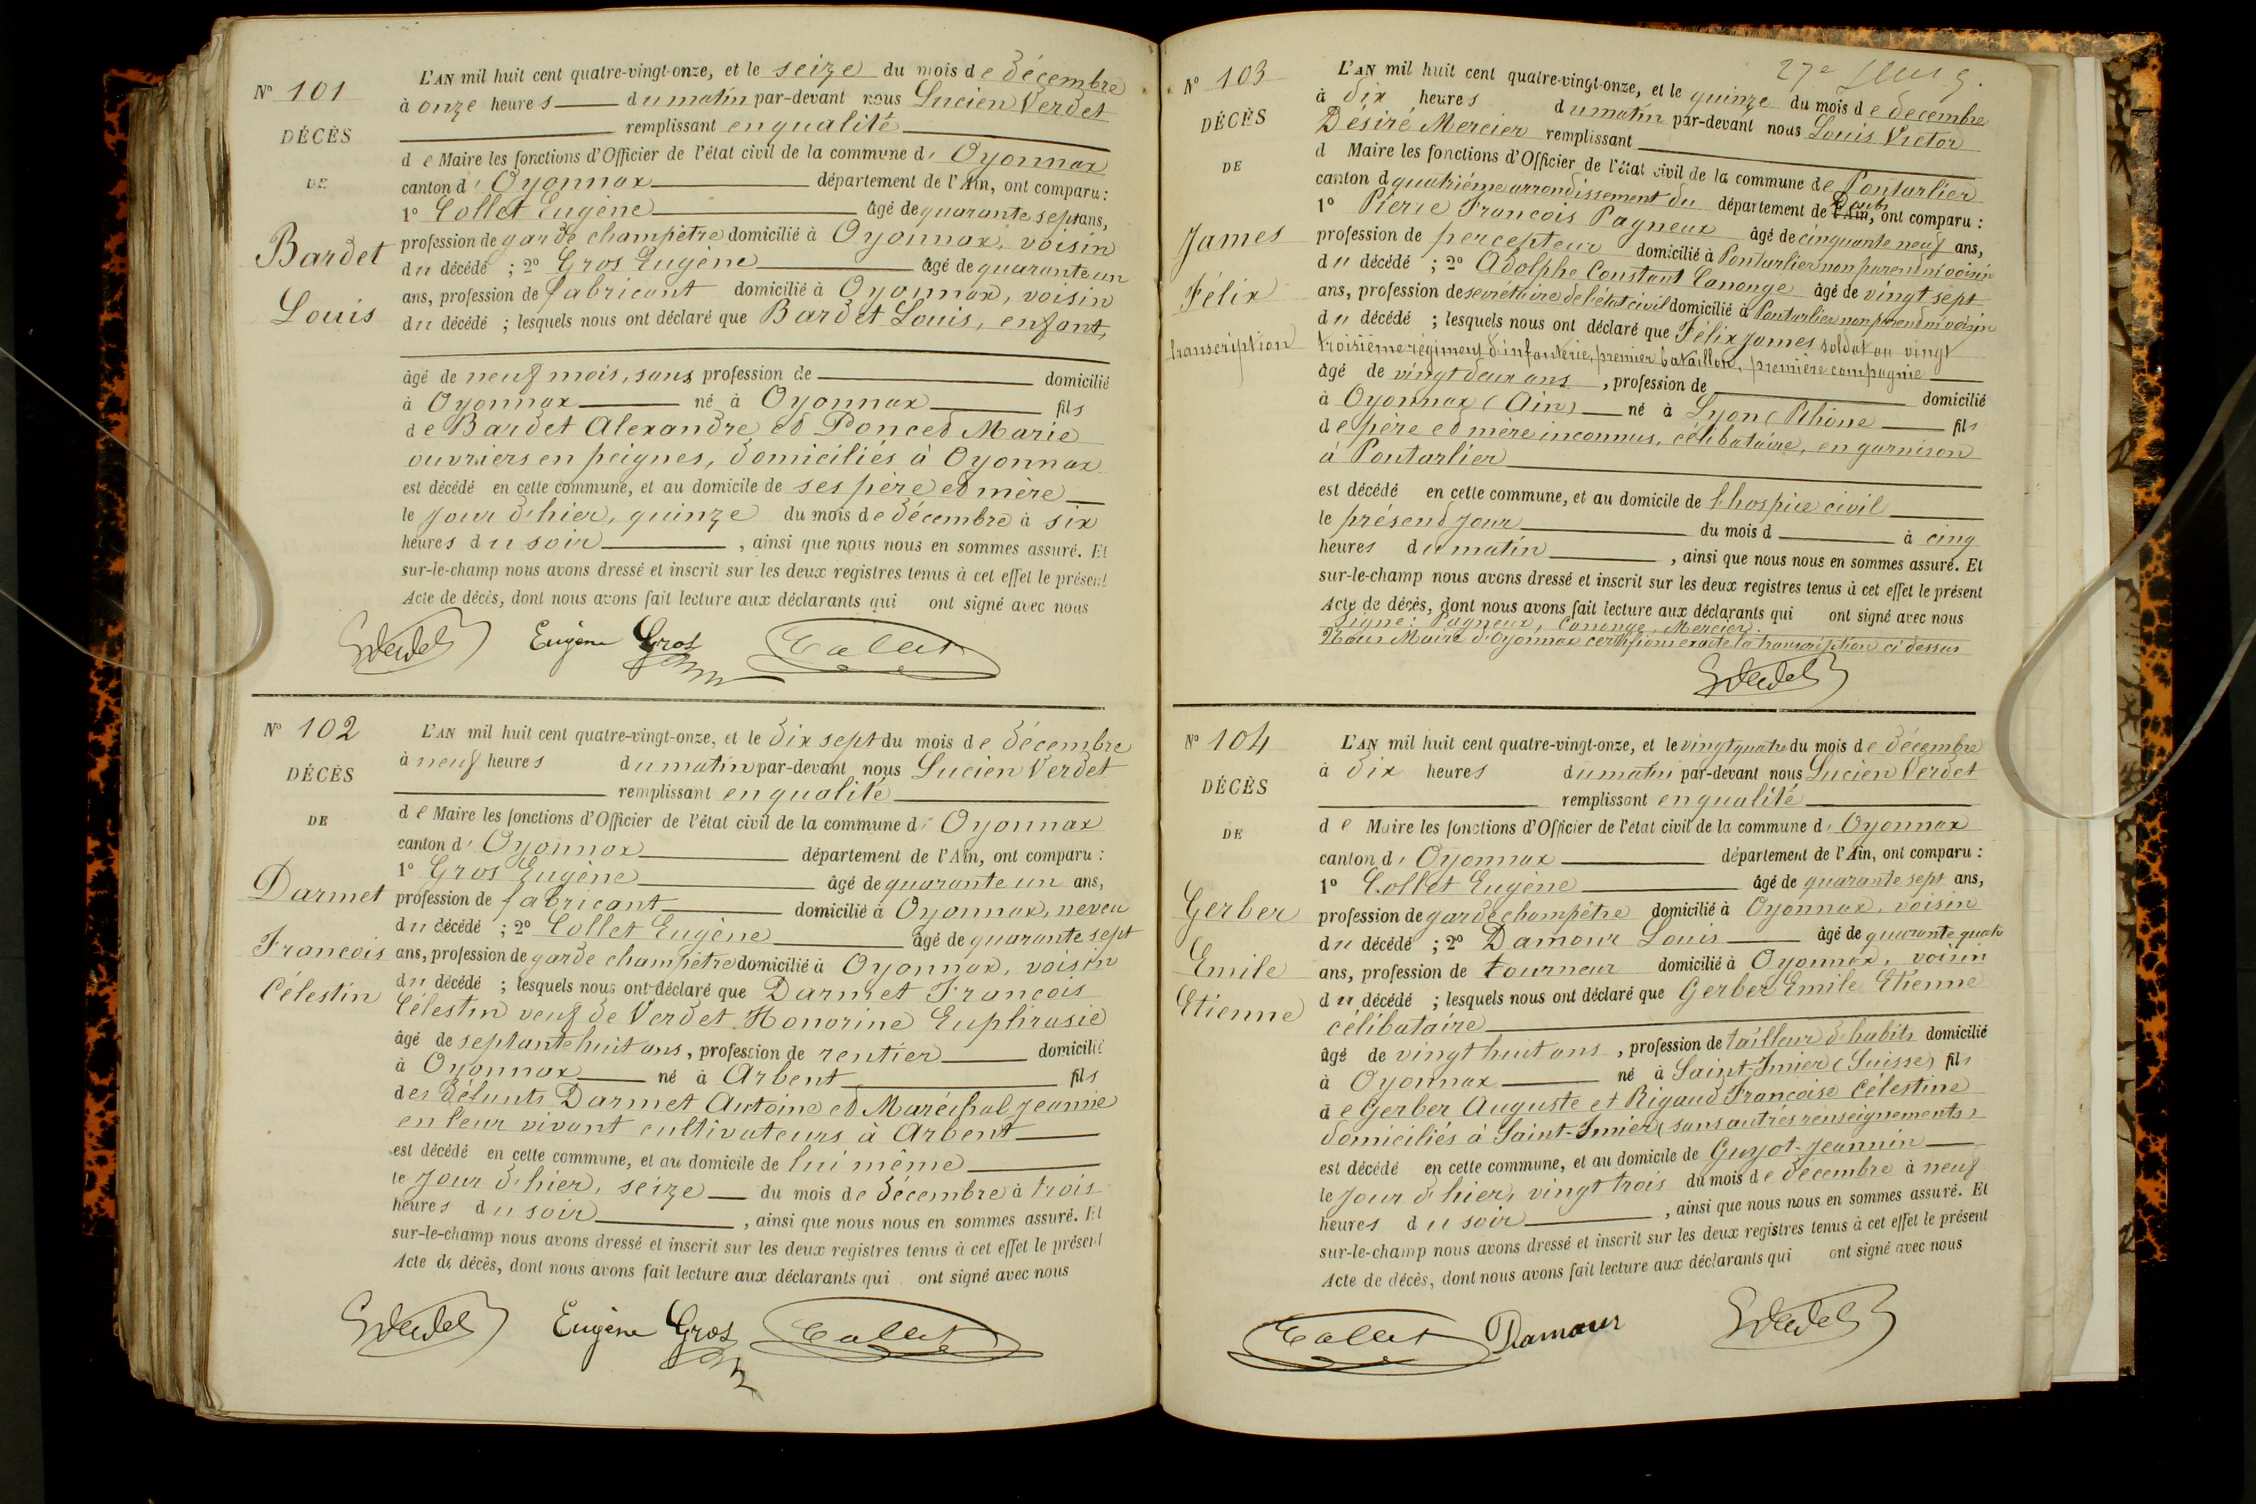 Nº 101
DÉCÈS
DE
Bardet
Louis
L'AN mil huit cent quatre-vingt-onze, et le seize du mois de décembre
à onze heures du matin par-devant nous Lucien Verdet
remplissant en qualité
de Maire les fonctions d'Officier de l'état civil de la commune d' Oyonnax
canton d' Oyonnax département de l'Ain, ont comparu :
1º Collet Eugène âgé de quarante sept ans,
profession de garde champêtre domicilié à Oyonnax, voisin
du décédé ; 2º Gros Eugène âgé de quarante un
ans, profession de fabricant domicilié à Oyonnax, voisin
du décédé ; lesquels nous ont déclaré que Bardet Louis, enfant,
âgé de neuf mois, sans profession de domicilié
à Oyonnax né à Oyonnax fils
de Bardet Alexandre et Poncet Marie
ouvriers en peignes, domiciliés à Oyonnax
est décédé en cette commune, et au domicile de ses père et mère
le jour d'hier, quinze du mois de décembre à six
heures du soir, ainsi que nous nous en sommes assuré. Et
sur-le-champ nous avons dressé et inscrit sur les deux registres tenus à cet effet le présent
Acte de décès, dont nous avons fait lecture aux déclarants qui ont signé avec nous
LVerdet Eugène Gros Collet
Nº 102
DÉCÈS
DE
Darmet
François
Célestin
L'AN mil huit cent quatre-vingt-onze, et le dix sept du mois de décembre
à neuf heures du matin par-devant nous Lucien Verdet
remplissant en qualité
de Maire les fonctions d'Officier de l'état civil de la commune d' Oyonnax
canton d' Oyonnax département de l'Ain, ont comparu :
1º Gros Eugène âgé de quarante un ans,
profession de fabricant domicilié à Oyonnax, neveu
du décédé ; 2º Collet Eugène âgé de quarante sept
ans, profession de garde champêtre domicilié à Oyonnax, voisin
du décédé ; lesquels nous ont déclaré que Darmet François
Célestin veuf de Verdet Honorine Euphrasie
âgé de septante huit ans, profession de rentier domicilié
à Oyonnax né à Arbent fils
des défunts Darmet Antoine et Maréchal Jeanne
en leur vivant cultivateurs à Arbent
est décédé en cette commune, et au domicile de lui même
le jour d'hier, seize du mois de décembre à trois
heures du soir, ainsi que nous nous en sommes assuré. Et
sur-le-champ nous avons dressé et inscrit sur les deux registres tenus à cet effet le présent
Acte de décès, dont nous avons fait lecture aux déclarants qui ont signé avec nous
LVerdet Eugène Gros Collet
27e
Nº 103
DÉCÈS
DE
James
Félix
transcription
L'AN mil huit cent quatre-vingt-onze, et le quinze du mois de decembre
à dix heures du matin par-devant nous Louis Victor
Désiré Mercier remplissant
d Maire les fonctions d'Officier de l'état civil de la commune de Pontarlier
canton d quatrième arrondissement du département de l'Ain, Doubs ont comparu :
1º Pierre Francois Pagneux âgé de cinquante neuf ans,
profession de percepteur domicilié à Pontarlier non parent ni voisin
du décédé ; 2º Adolphe Constant Canonge âgé de vingt sept
ans, profession de secrétaire de l'état civil domicilié à Pontarlier non parent ni voisin
du décédé ; lesquels nous ont déclaré que Félix James soldat au vingt
troisième régiment d'infanterie, premier bataillon, première compagnie
âgé de vingt deux ans, profession de domicilié
à Oyonnax (Ain) né à Lyon (Rhône fils
de père et mère inconnus, célibataire, en garnison
à Pontarlier
est décédé en cette commune, et au domicile de l'hospice civil
le présent jour du mois d à cinq
heures du matin, ainsi que nous nous en sommes assuré. Et
sur-le-champ nous avons dressé et inscrit sur les deux registres tenus à cet effet le présent
Acte de décès, dont nous avons fait lecture aux déclarants qui ont signé avec nous
Signé : Pagneux, Canonge, Mercier.
Nous Maire d'Oyonnax certifions exacte la transcription ci dessus
LVerdet
Nº 104
DÉCÈS
DE
Gerber
Emile
Etienne
L'AN mil huit cent quatre-vingt-onze, et le vingt quatre du mois de décembre
à dix heures du matin par-devant nous Lucien Verdet
remplissant en qualité
de Maire les fonctions d'Officier de l'état civil de la commune d' Oyonnax
canton d' Oyonnax département de l'Ain, ont comparu :
1º Collet Eugène âgé de quarante sept ans,
profession de garde champêtre domicilié à Oyonnax, voisin
du décédé ; 2º Damour Louis âgé de quarante quatre
ans, profession de tourneur domicilié à Oyonnax, voisin
du décédé ; lesquels nous ont déclaré que Gerber Emile Etienne
célibataire
âgé de vingt huit ans, profession de tailleur d'habits domicilié
à Oyonnax né à Saint-Imier (Suisse) fils
de Gerber Auguste et Rigaud Françoise Célestine
domiciliés à Saint-Imier (sans autres renseignements)
est décédé en cette commune, et au domicile de Guyot-Jeannin
le jour d'hier, vingt trois du mois de décembre à neuf
heures du soir, ainsi que nous nous en sommes assuré. Et
sur-le-champ nous avons dressé et inscrit sur les deux registres tenus à cet effet le présent
Acte de décès, dont nous avons fait lecture aux déclarants qui ont signé avec nous
Collet Damour LVerdet